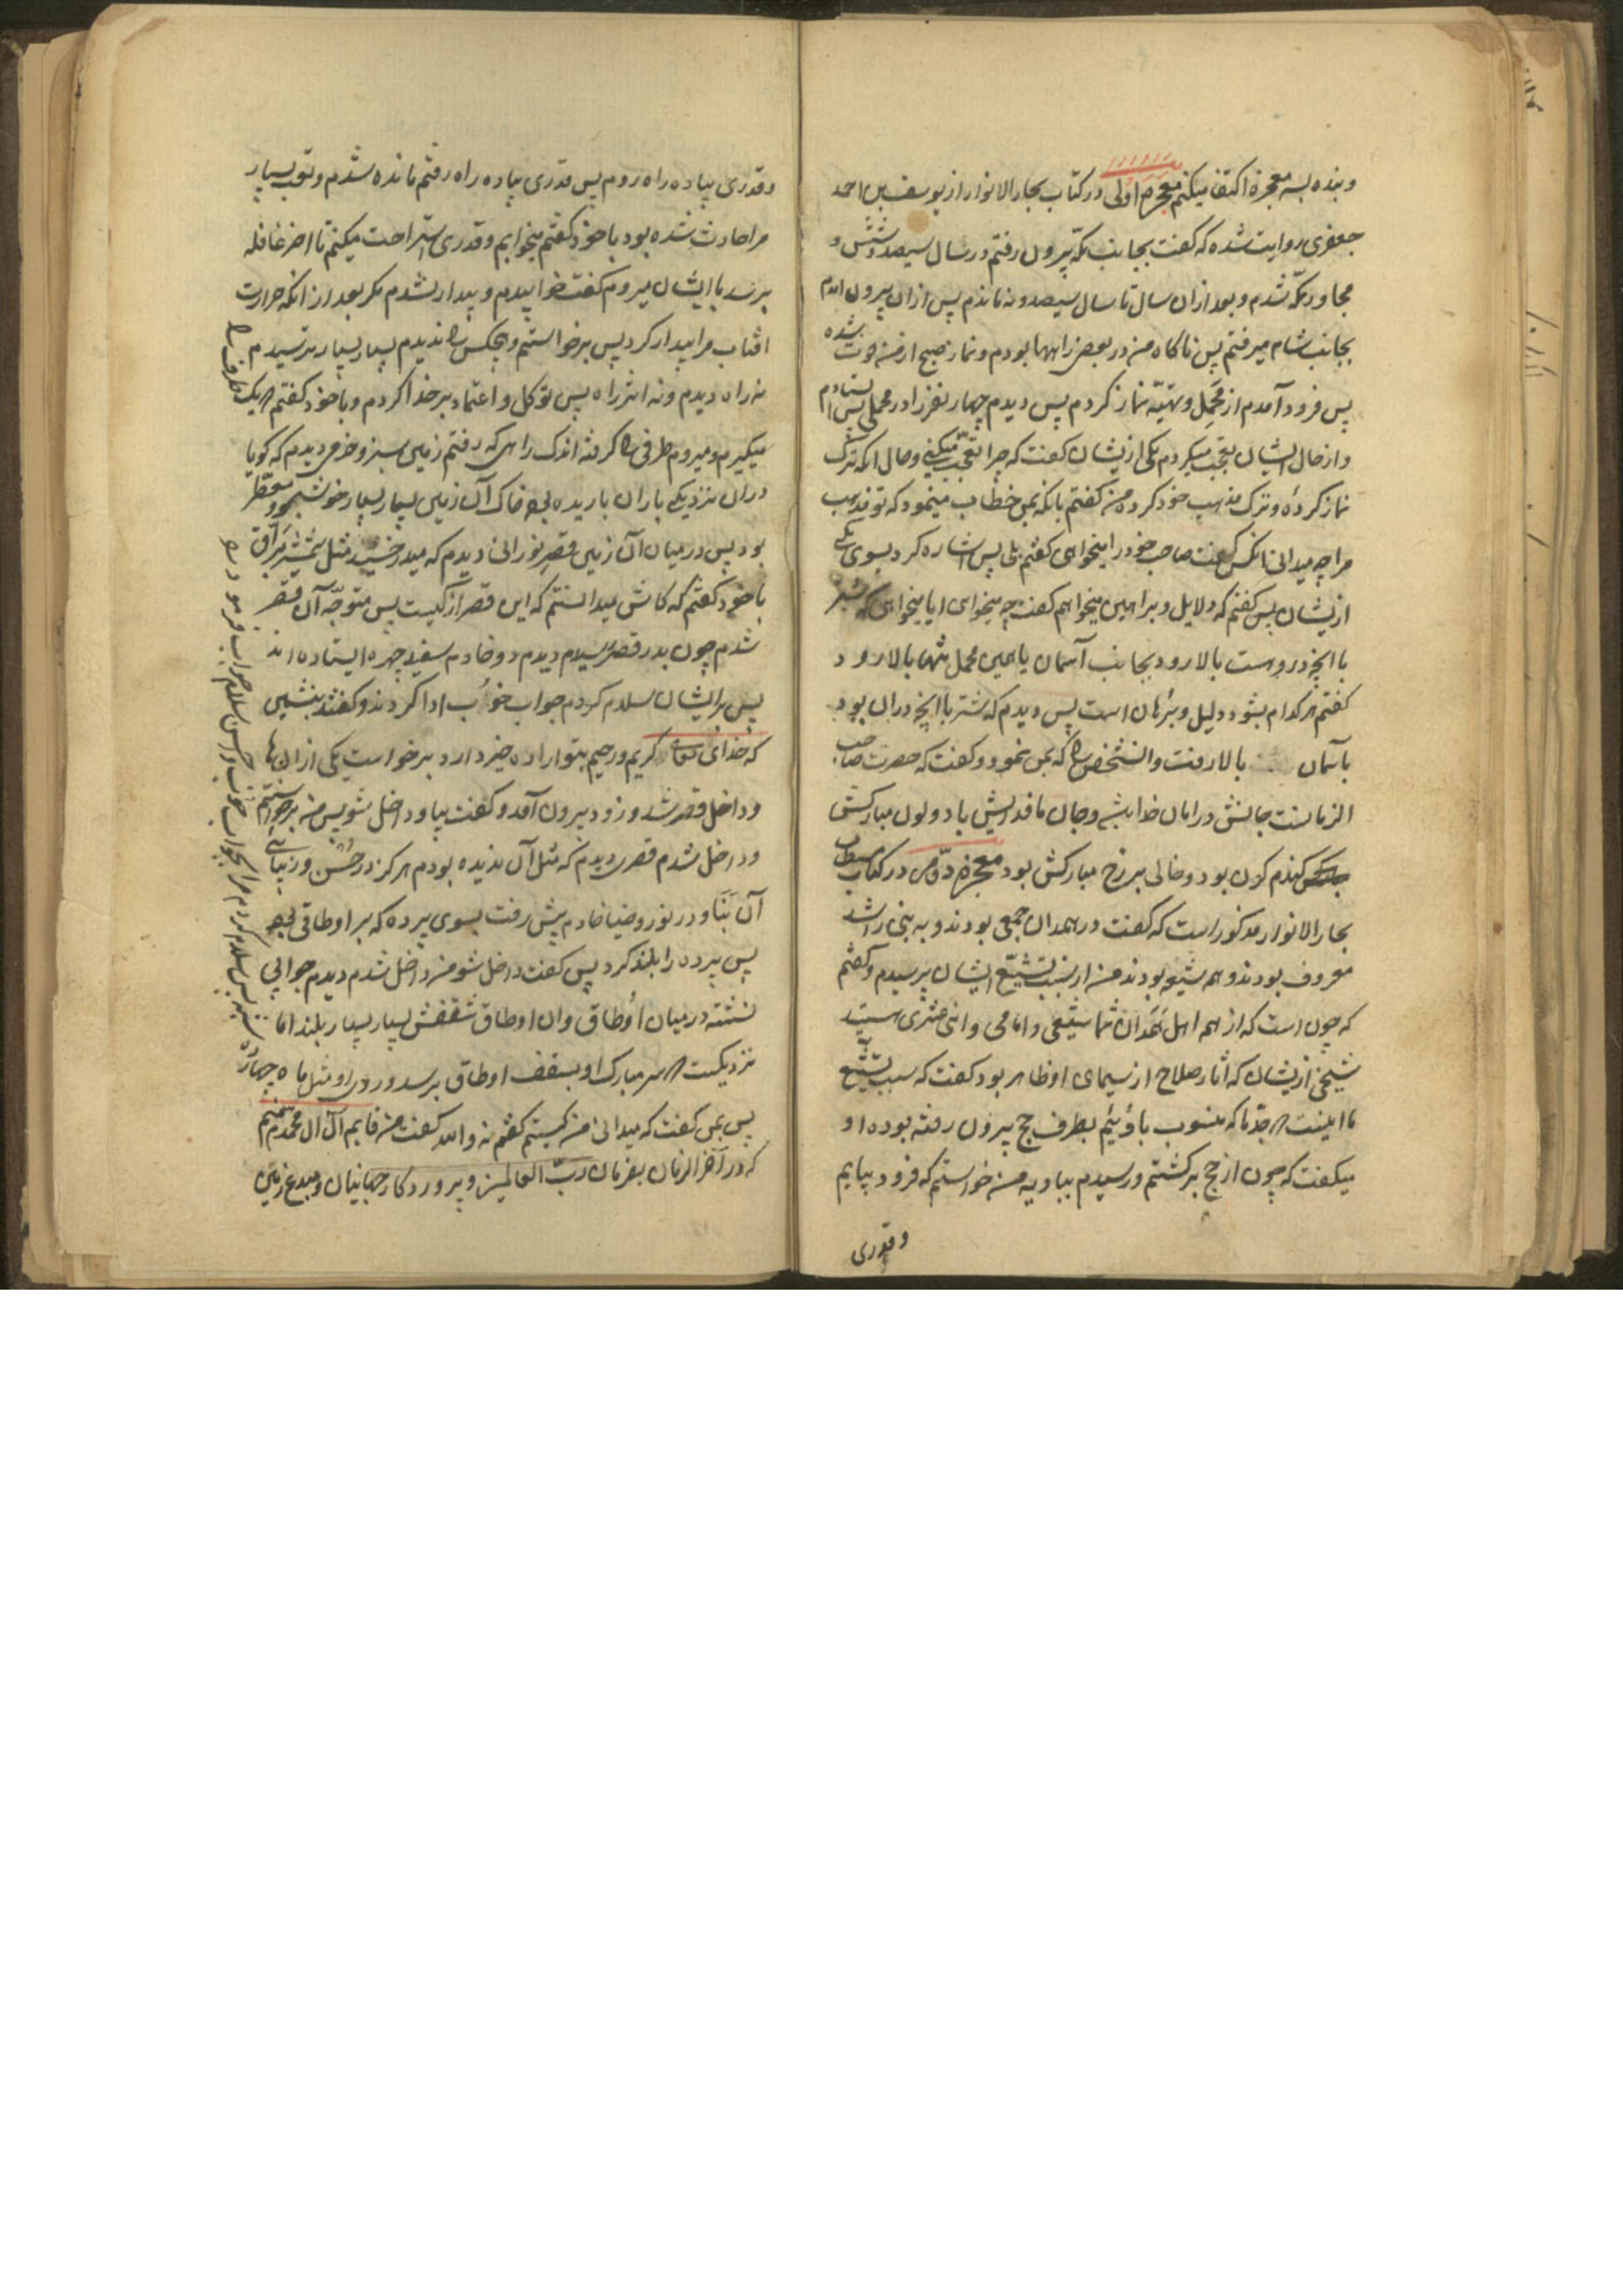 و بنده بسه معجزه اکتفا میکنم معجزه اولی در کتاب بحار الانوار از یوسف بن احمد
جعفری روایت شده که گفت بجانب مکه بیرون رفتم در سال سیصد و شش و
مجاور مکه شدم و بعد از ان سال تا سال سیصد و نه ماندم پس از ان بیرون امدم
بجانب شام میرفتم پس ناکاه من در بعض راهها بودم و نماز صبح از من فوت شده
پس فرود آمدم از محمل و تهیّه نماز کردم پس دیدم چهار نفر را در محملی پس ایستادم
و از حال ایشان تعجب میکردم یکی از یشان گفت که چرا تعجب میکنی و حال انکه ترک
نماز کرده و ترک مذهب خود کرده من گفتم بانکه بمن خطاب مینمود که تو مذهب
مرا چه میدانی انکس گفت صاحب خود را میخواهی گفتم بلی پس اشاره کرد بسوی یکی
از یشان پس گفتم که دلایل و براهین میخواهم گفت چه میخواهی ایا میخواهی که شتر
با انچه در وست بالا رود بجانب آسمان یا همین محمل تنها بالا رود
گفتم هر کدام بشود دلیل و برهان است پس دیدم که شتر با انچه در ان بود
بآسمان بالا رفت و انشخص را که بمن نمود و گفت که حضرت صاحب
الزمانست جانش در امان خدا باشد و جان ما فدایش باد و لون مبارکش
گندم گون بود و خالی بر رخ مبارکش بود معجزه دوّمی در کتاب مستطاب
بحار الانوار مذکور است که گفت در همدان جمعی بودند و به بنی راشد
معروف بودند و همه شیعه بودند من از سبب تشیّع ایشان پرسیدم و گفتم
که چون است که از همه اهل همدان شما شیعی و امامی و اثنی عشری هستید
شیخی از یشان که آثار صلاح از سیمای او ظاهر بود گفت که سبب تشیّع
ما اینست که جدّ ما که منسوب باوئیم بطرف حج بیرون رفته بوده او
میکفت که چون از حج برکشتم و رسیدم ببادیه من خواستم که فرود بیایم
و قدری
و قدری پیاده راه روم پس قدری پیاده راه رفتم مانده شدم و تعب بسیار
مرا حادث شده بود با خود گفتم میخوابم و قدری استراحت میکنم تا اخر غافله
برسد با ایشان میروم گفت خوابیدم و بیدار نشدم مکر بعد از انکه حرارت
افتاب مرا بیدار کرد پس برخواستم و هیچکس را ندیدم بسیار بسیار ترسیدم
نه راه دیدم و نه اثر راه پس توکل و اعتماد بر خدا کردم و با خود کفتم که یک طرف را
میکیرم و میروم طرفی را کرفته اندک راهی که رفتم زمین سبز و خرمی دیدم که گویا
در ان نزدیکی باران باریده بود خاک آن زمین بسیار بسیار خوشبو و معطّر
بود پس در میان آن زمین قصر نورانی دیدم که میدرخشید مثل شمشیر برّاق
با خود کفتم که کاش میدانستم که این قصر از کیست پس متوجّه آن قصر
شدم چون بدر قصر رسیدم دیدم دو خادم سفید چهره ایستاده اند
پس بر ایشان سلام کردم جواب خوب ادا کردند و گفتند بنشین
که خدای تعالی کریم و رحیم بتو اراده خیر دارد برخواست یکی از ان ها
و داخل قصر شد و زود بیرون آمد و گفت بیا و داخل شو پس من برخواستم
و داخل شدم قصری دیدم که مثل آن ندیده بودم هرکز در حُسن و زیبائی
آن بنا و در نور و ضیا خادم پیش رفت بسوی پرده که بر اوطاقی بود
پس پرده را بلند کرد پس کفت داخل شو من داخل شدم دیدم جوانی
نشسته در میان اُوطاق و ان اوطاق سقفش بسیار بسیار بلند اما
نزدیکست که سر مبارک او بسقف اوطاق برسد و روی او مثل ماه چهارده
شبه پس سلام کردم مرا بجواب خوب و احسن سلام جواب فرمود
پس بمن کفت که میدانی من کیستم کفتم نه و الله کفت منم قایم آل محمد منم
که در آخر الزمان بفرمان ربّ العالمین و پروردکار جهانیان و مبدع زمین